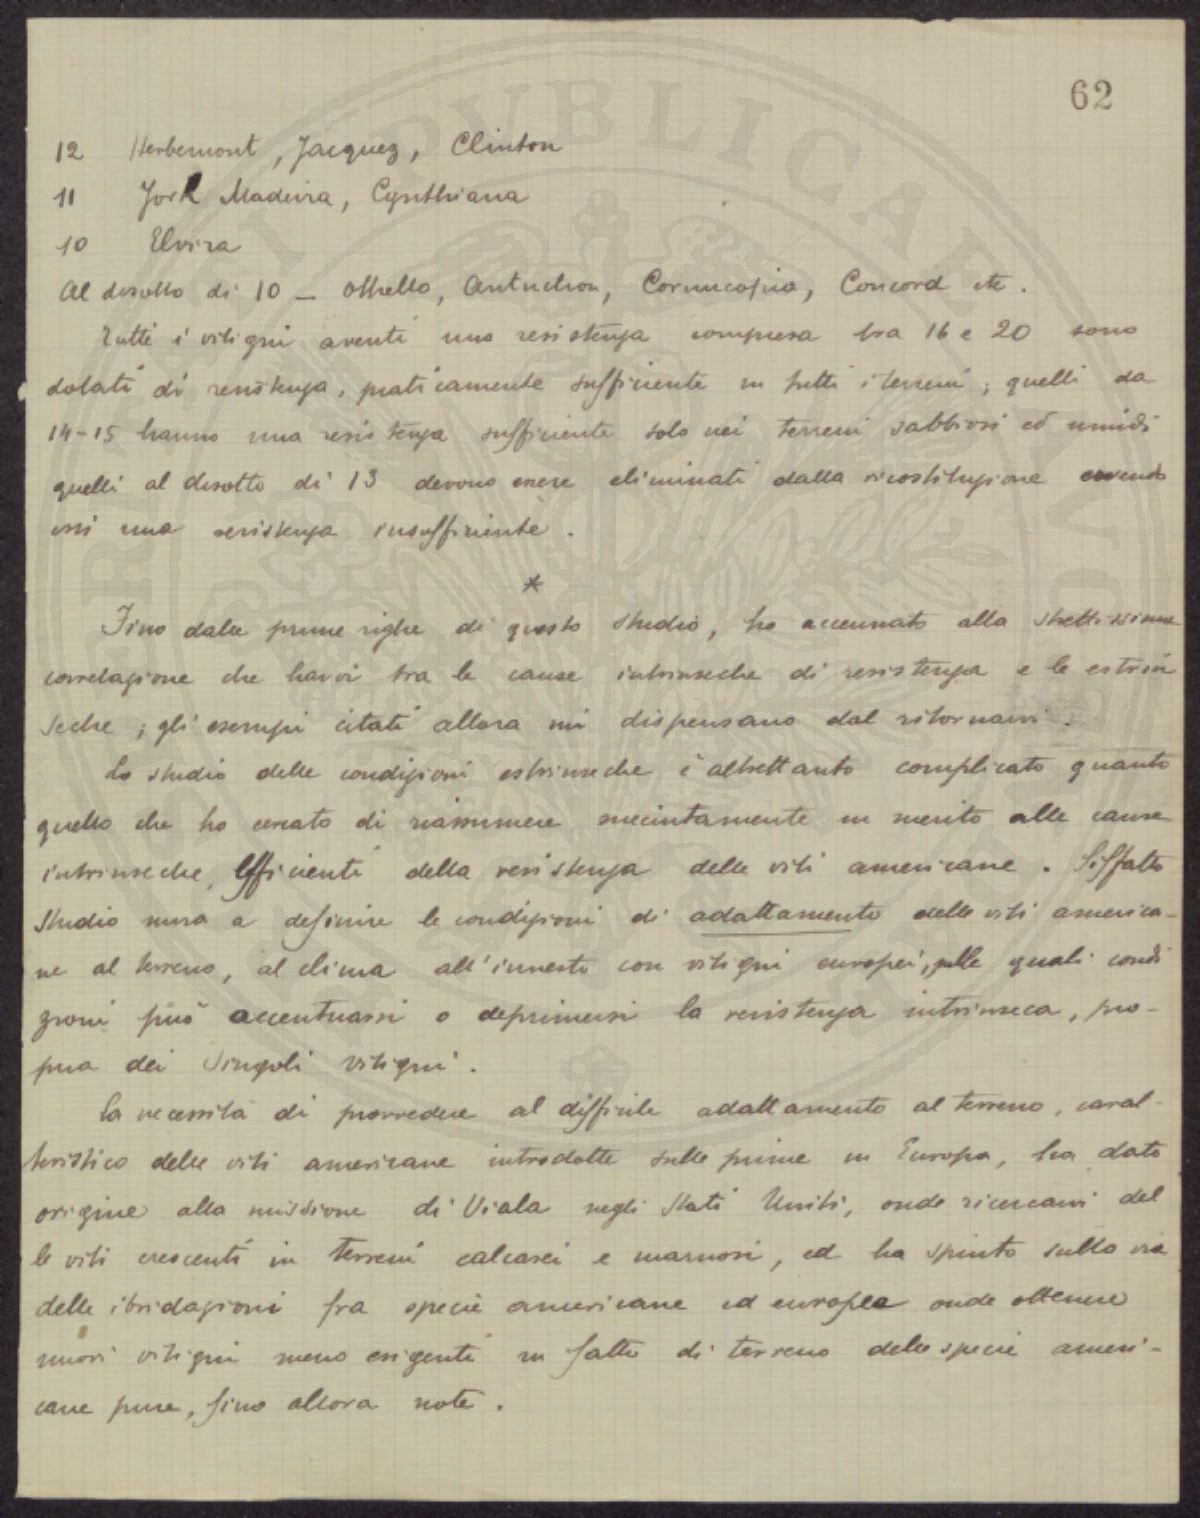 62
12 Herbemont, Jacquez, Clinton
11 York Madeira, Cynthiana
10 Elvira
Al disotto di 10 — Othello, Autuchon, Cornucopia, Concord etc.
Tutti i vitigni aventi una resistenza compresa tra 16 e 20 sono
dotati di resistenza, praticamente sufficiente in tutti i terreni; quelli da
14-15 hanno una resistenza sufficiente solo nei terreni sabbiosi ed umidi
quelli al disotto di 13 devono essere eliminati dalla ricostituzione avendo
essi una resistenza insufficiente.
*
Fino dalle prime righe di questo studio, ho accennato alla strettissima
correlazione che havvi tra le cause intrinseche di resistenza e le estrin
seche; gli esempi citati allora mi dispensano dal ritornarvi.
Lo studio delle condizioni estrinseche è altrettanto complicato quanto
quello che ho cercato di riassumere succintamente in merito alle cause
intrinseche, efficienti della resistenza delle viti americane. Siffatto
studio mira a definire le condizioni di adattamento delle viti america-
ne al terreno, al clima all'innesto con vitigni europei, nelle quali condi
zioni può accentuarsi o deprimersi la resistenza intrinseca, pro-
pria dei singoli vitigni.
La necessità di provvedere al difficile adattamento al terreno, carat-
teristico delle viti americane introdotte sulle prime in Europa, ha dato
origine alla missione di Viala negli Stati Uniti, onde ricercarvi del
le viti crescenti in terreni calcarei e marnosi, ed ha spinto sulla via
delle ibridazioni fra specie americane ed europee onde ottenere
nuovi vitigni meno esigenti in fatto di terreno delle specie ameri-
cane pure, fino allora note.